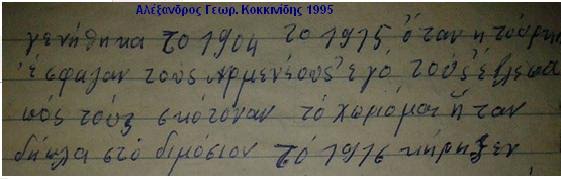 Αλέξανδρος Γεωρ. Κοκκινίδης 1995
γενήθηκα το 1904 το 1915 ὅταν η τούρκη
ἐσφαζαν τούς Αρμενέους ἐγό τούς ἔβλεπα
πός τούς σκότοναν τό χωμόμας ἤταν
δήπλα στό διμόσιον τό 1916 κήρηξεν